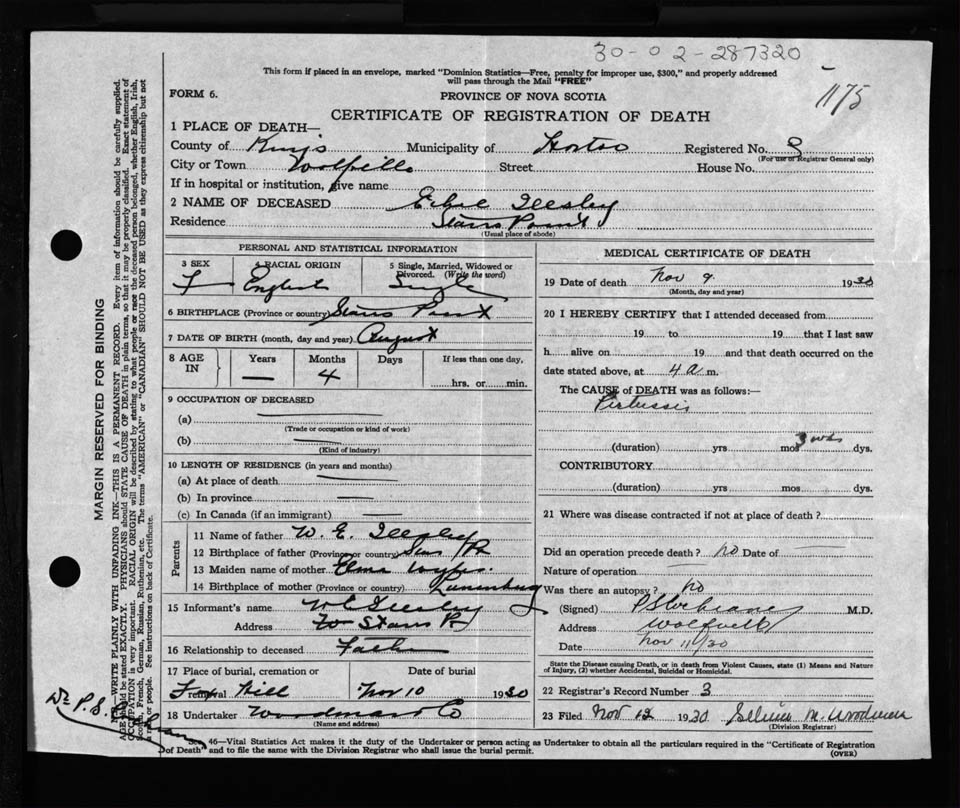 30-02-287320
This form if placed in an envelope, marked "Dominion Statistics—Free, penalty for improper use, $300," and properly addressed
will pass through the Mail "FREE"
1175
FORM 6.
PROVINCE OF NOVA SCOTIA
CERTIFICATE OF REGISTRATION OF DEATH
1 PLACE OF DEATH—
County of Kings Municipality of Horton Registered No.
(For use of Registrar General only)
City or Town Wolfville Street House No.
If in hospital or institution, give name
2 NAME OF DECEASED Ethel
Residence
(Usual place of abode)
PERSONAL AND STATISTICAL INFORMATION
3 SEX 4 RACIAL ORIGIN 5 Single, Married, Widowed or Divorced. (Write the word)
F English Single
6 BIRTHPLACE (Province or country)
7 DATE OF BIRTH (month, day and year) August
8 AGE IN Years Months Days If less than one day,
— 4 hrs. or min.
9 OCCUPATION OF DECEASED
(a) —
(Trade or occupation or kind of work)
(b) —
(Kind of industry)
10 LENGTH OF RESIDENCE (in years and months)
(a) At place of death —
(b) In province —
(c) In Canada (if an immigrant) —
Parents
11 Name of father W. E.
12 Birthplace of father (Province or country)
13 Maiden name of mother
14 Birthplace of mother (Province or country) Lunenburg
15 Informant's name
Address
16 Relationship to deceased Father
17 Place of burial, cremation or removal Date of burial
Hill Nov 10 1930
18 Undertaker Woodman Co
(Name and address)
MEDICAL CERTIFICATE OF DEATH
19 Date of death Nov 9. 1930
(Month, day and year)
20 I HEREBY CERTIFY that I attended deceased from
19 to 19 that I last saw
h alive on 19 and that death occurred on the
date stated above, at 4 a m.
The CAUSE of DEATH was as follows:—
Pertussis
(duration) yrs mos 3 wks dys.
CONTRIBUTORY
(duration) yrs mos dys.
21 Where was disease contracted if not at place of death?
Did an operation precede death? no Date of —
Nature of operation —
Was there an autopsy? no
(Signed) M.D.
Address Wolfville
Date Nov 11/30
State the Disease causing Death, or in death from Violent Causes, state (1) Means and Nature
of Injury, (2) whether Accidental, Suicidal or Homicidal.
22 Registrar's Record Number 3
23 Filed Nov 12 1930 M. Woodman
(Division Registrar)
Sec. 46—Vital Statistics Act makes it the duty of the Undertaker or person acting as Undertaker to obtain all the particulars required in the "Certificate of Registration
of Death" and to file the same with the Division Registrar who shall issue the burial permit.
(OVER)
MARGIN RESERVED FOR BINDING
WRITE PLAINLY WITH UNFADING INK—THIS IS A PERMANENT RECORD. Every item of information should be carefully supplied.
AGE should be stated EXACTLY. PHYSICIANS should STATE CAUSE OF DEATH in plain terms, so that it may be properly classified. Exact statement of
OCCUPATION is very important. RACIAL ORIGIN will be described by stating to what people or race the deceased person belonged, whether English, Irish,
Scotch, French, German, Russian, Ruthenian, etc. The terms "AMERICAN" or "CANADIAN" SHOULD NOT BE USED as they express citizenship but not
a race or people. See instructions on back of Certificate.
Dr. P. S.